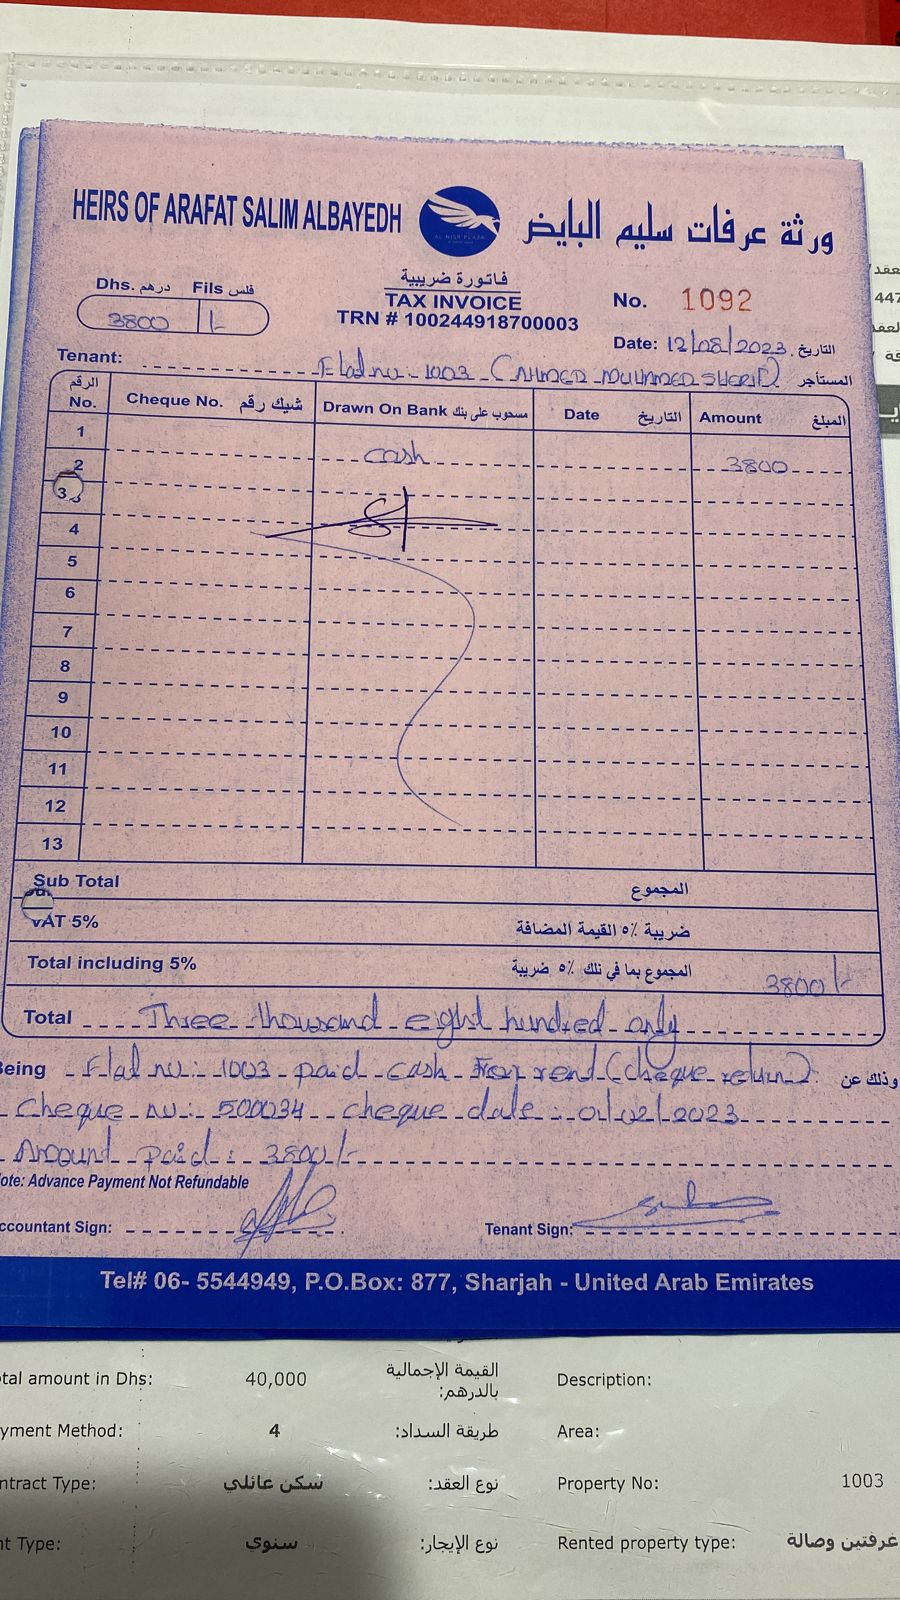 HEIRS OF ARAFAT SALIM ALBAYEDH
ورثة عرفات سليم البايض
AL NISR PLAZA
فاتورة ضريبية
TAX INVOICE
TRN # 100244918700003
Dhs. درهم Fils فلس
3800 /-
No. 1092
Date: 12/08/2023 التاريخ
Tenant: Flat no. 1003 (AHMED MUHMMED SHERIF) المستأجر
الرقم No. Cheque No. شيك رقم Drawn On Bank مسحوب على بنك Date التاريخ Amount المبلغ
1
2 cash 3800
3
4
5
6
7
8
9
10
11
12
13
Sub Total المجموع
VAT 5% ضريبة ٥٪ القيمة المضافة
Total including 5% المجموع بما في ذلك ٥٪ ضريبة 3800/-
Total Three thousand eight hundred only
Being Flat no:- 1003 paid cash For rent (cheque return) وذلك عن
Cheque no:- 500034 cheque date:- 01/02/2023
Amount paid: 3800/-
ote: Advance Payment Not Refundable
ccountant Sign: Tenant Sign:
Tel# 06- 5544949, P.O.Box: 877, Sharjah - United Arab Emirates
tal amount in Dhs: 40,000 القيمة الإجمالية بالدرهم: Description:
yment Method: 4 طريقة السداد: Area:
ntract Type: سكن عائلي نوع العقد: Property No: 1003
nt Type: سنوي نوع الإيجار: Rented property type: غرفتين وصالة